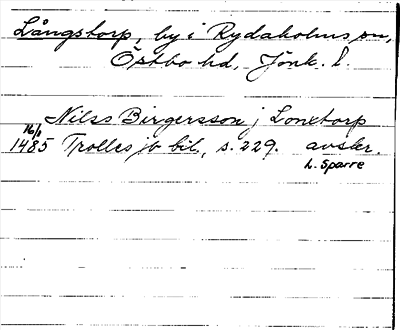 Långstorp, by i Rydaholms sn,
Östbo hd, Jönk. l.
Nilss Birgersson j Lonxtorp
16/1
1485 Trolles jb bil., s. 229. avskr.
L. Sparre